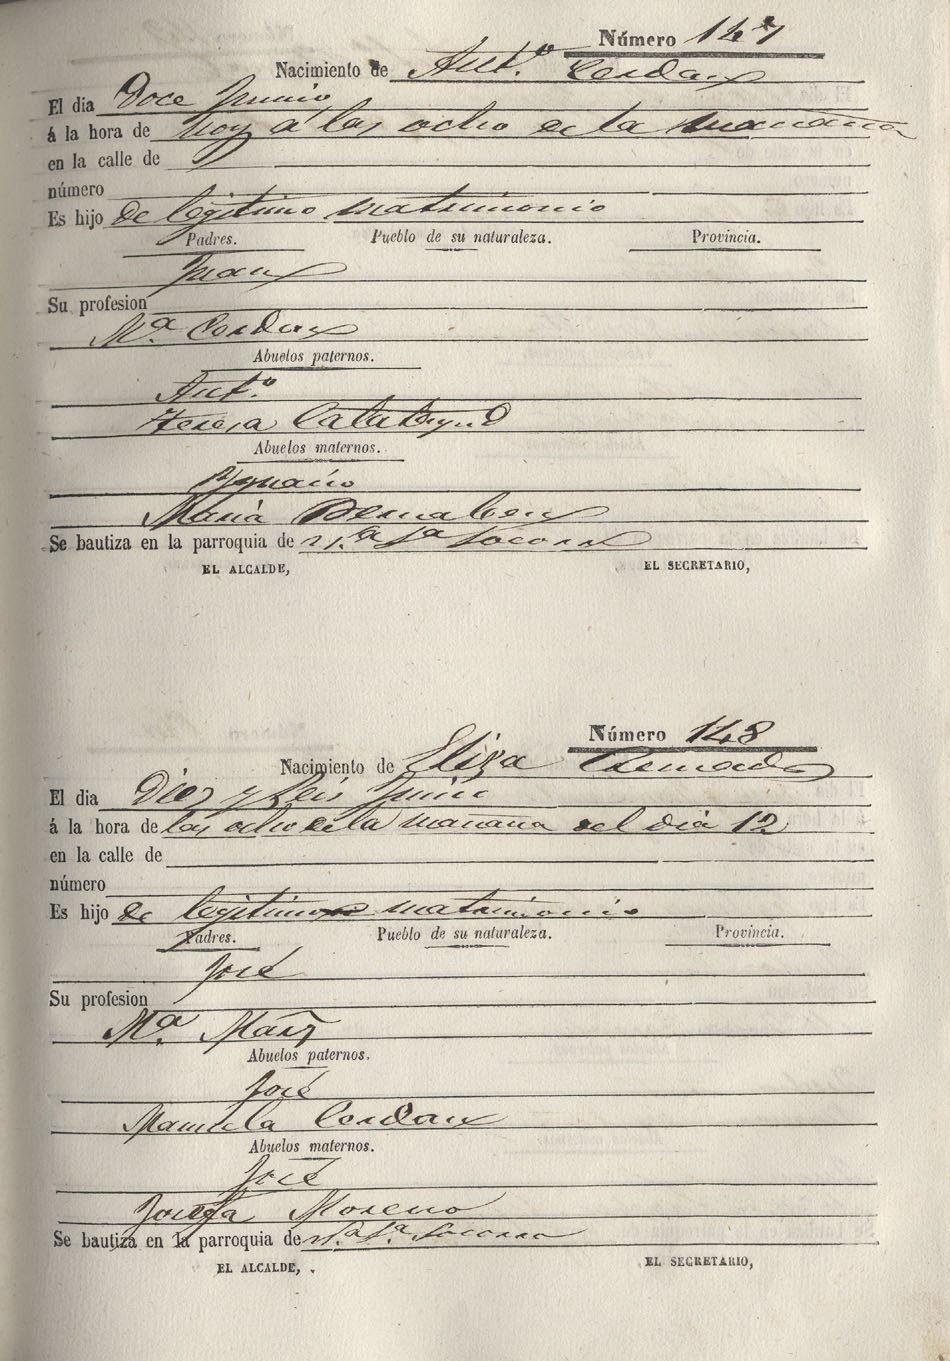 Número 147
Nacimiento de Ant.º Cerdan
El dia Doce Junio
á la hora de hoy á las ocho de la mañana
en la calle de
número
Es hijo de legitimo matrimonio
Padres. Pueblo de su naturaleza. Provincia.
Juan
Su profesion
Mª Cerdan
Abuelos paternos.
Ant.º
Teresa Calatayud
Abuelos maternos.
Ygnacio
Maria Bernabeu
Se bautiza en la parroquia de N.ª S.ª Socorro
EL ALCALDE, EL SECRETARIO,
Número 148
Nacimiento de Eliza
El dia Diez y Seis Junio
á la hora de las ocho de la mañana del dia 12
en la calle de
número
Es hijo de legitimo matrimonio
Padres. Pueblo de su naturaleza. Provincia.
José
Su profesion
Mª
Abuelos paternos.
José
Manuela Cerdan
Abuelos maternos.
José
Josefa Moreno
Se bautiza en la parroquia de N.ª S.ª Socorro
EL ALCALDE, EL SECRETARIO,